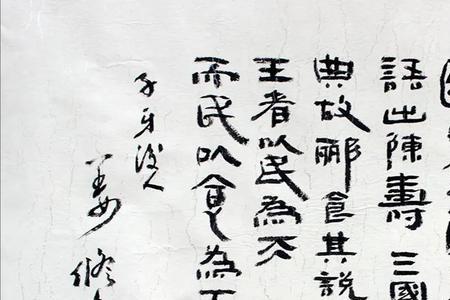 語出陳壽三國
典故酈食其說
王者以民為天
而民以食為
子牙後人
姜